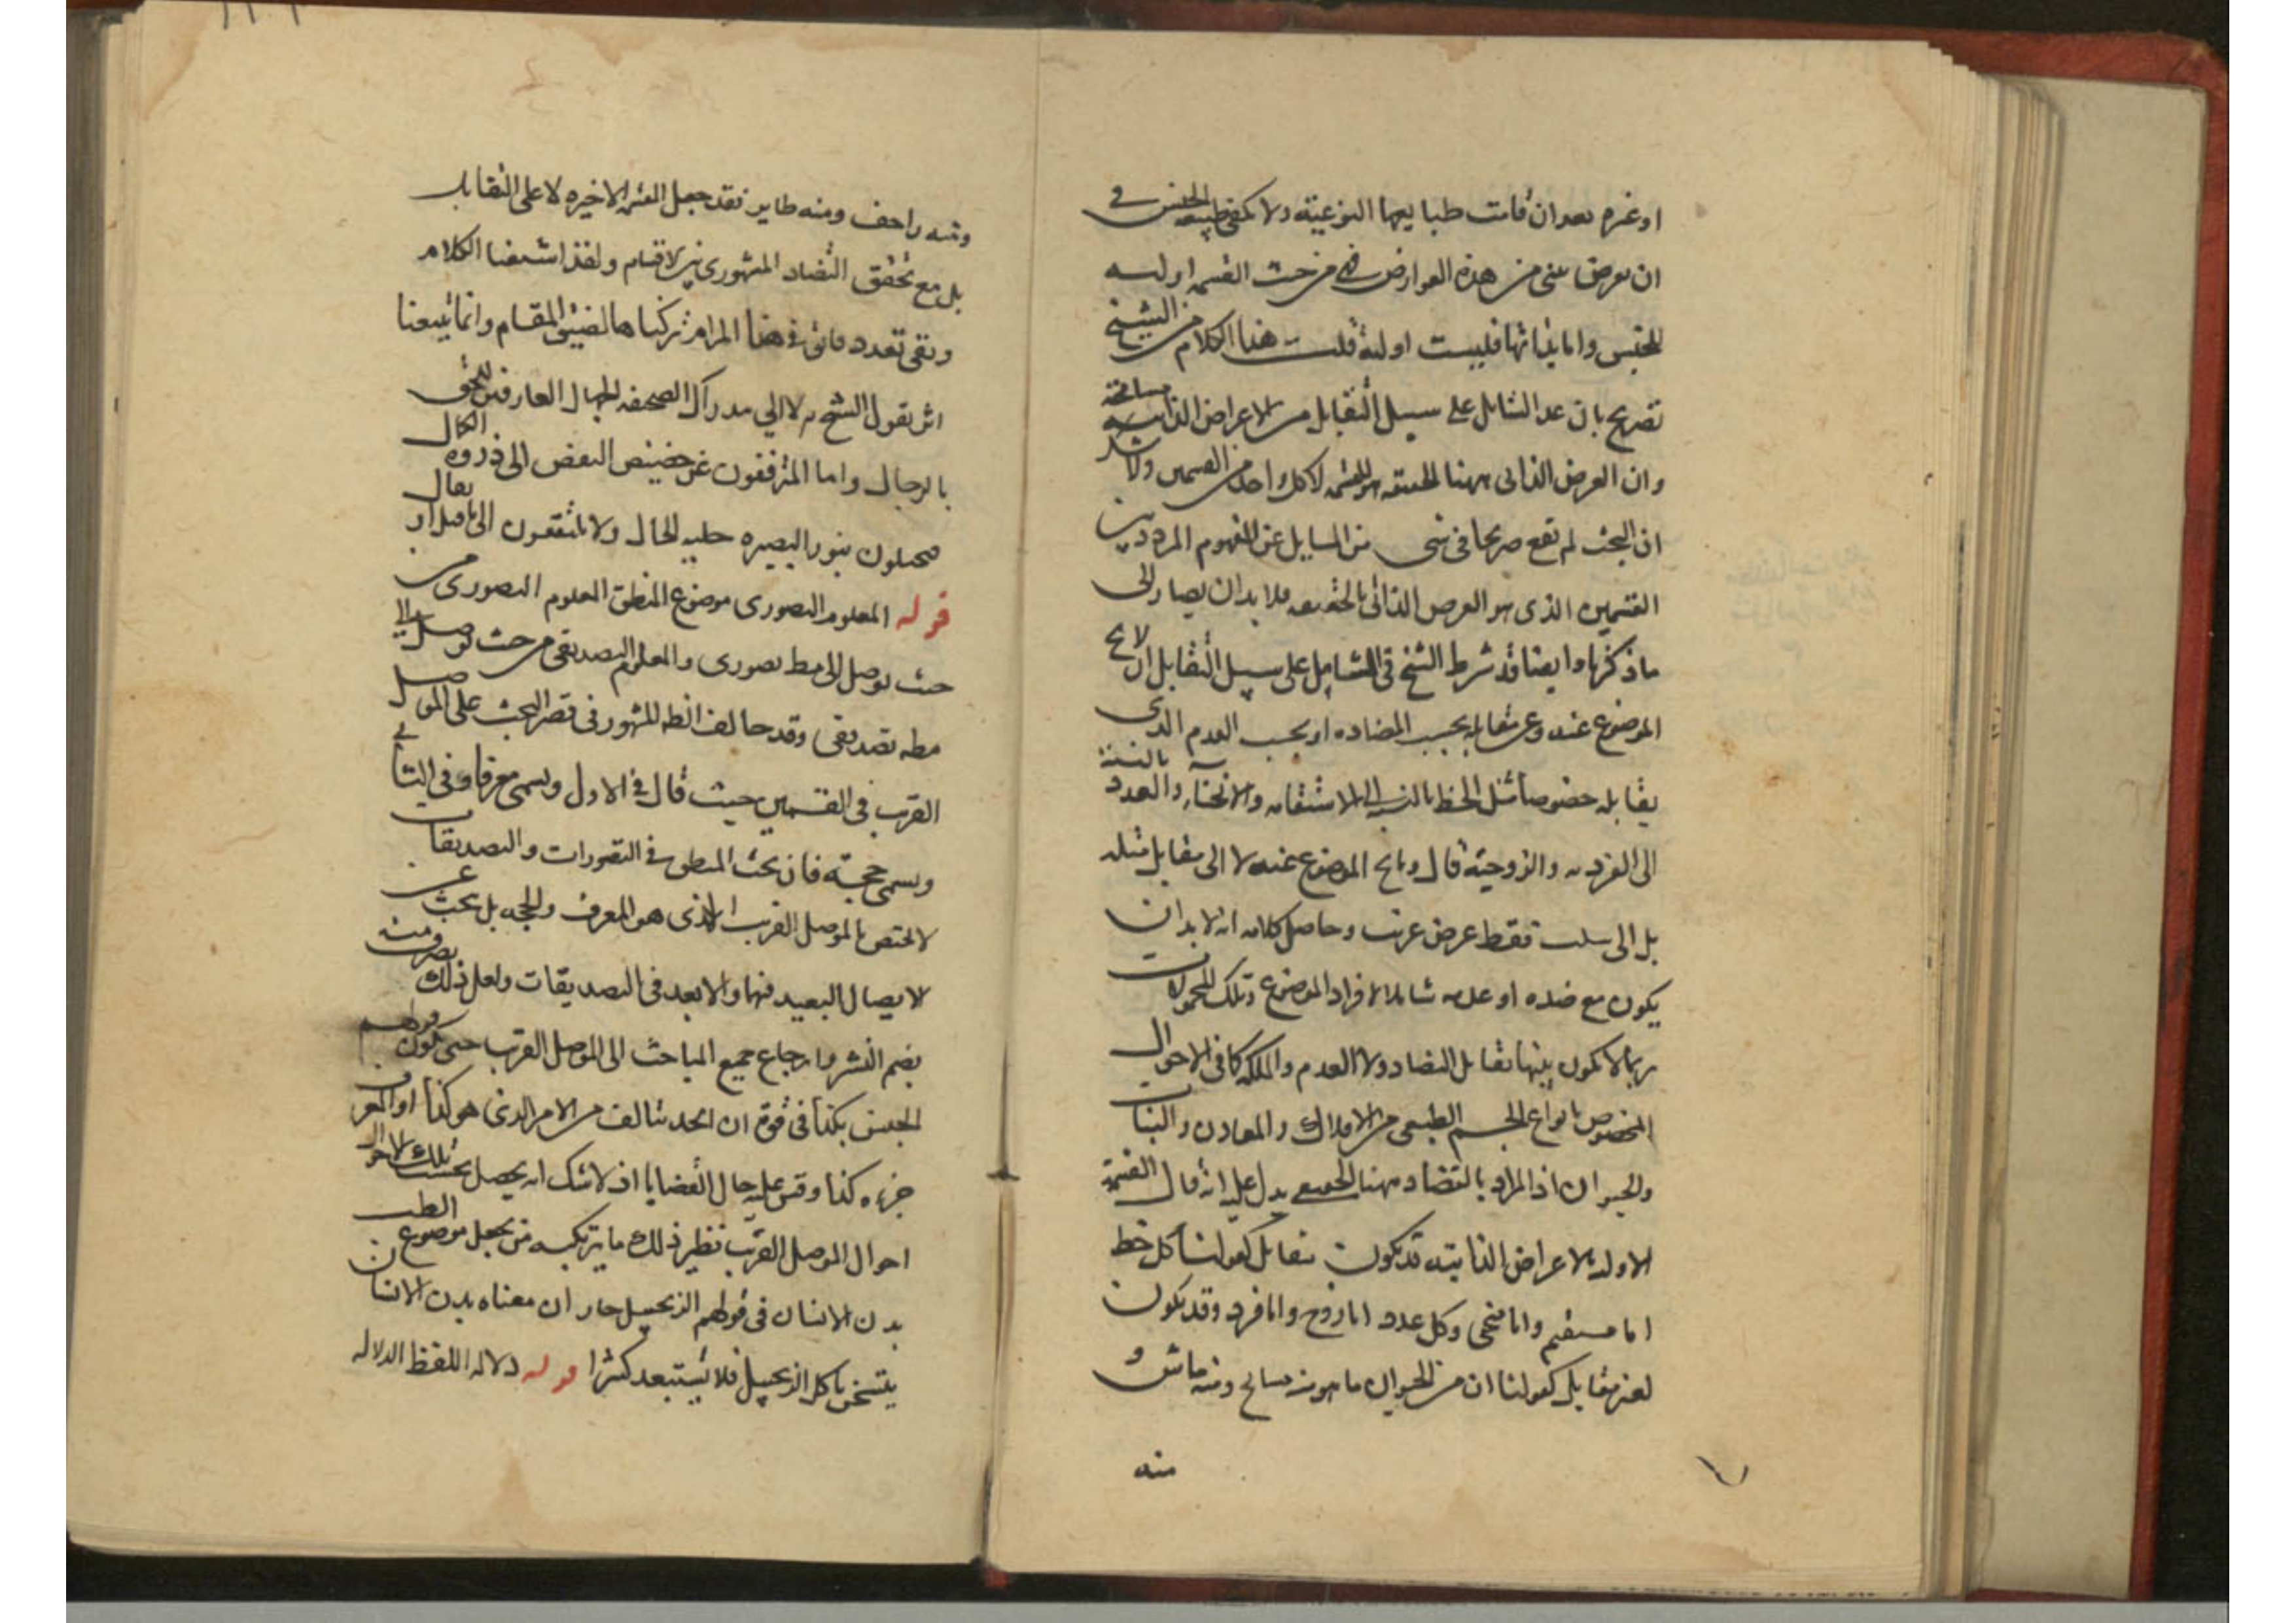 او غيره بعد ان قامت طبايعها النوعية ولا يكفى طبيعة الجنس فى
ان يعرض شى من هذه العوارض فهى من حيث القسمه اوليه
للجنس واما بذاتها فليست اوليه قلت هذا الكلام من الشيخ
تصريح بان عد الشامل على سبيل التقابل من الاعراض الذاتيه مسامحة
وان العرض الذاتى ههنا بالحقيقه هو القسمه لا كل واحد من القسمين ولا شك
ان البحث لم يقع صريحا فى شى من المسايل عن المفهوم المردد بين
القسمين الذى هو العرض الذاتى بالحقيقه فلا بد ان يصار الى
ما ذكرنا وايضا قد شرط الشيخ فى الشامل على سبيل التقابل ان لا يخ
الموضوع عنه وعن مقابله بحسب المضاده او بحسب العدم الذى
يقابله خصوصا مثل الخط بالنسبه الى الاستقامه والانحناء والعدد بالنسبة
الى الفرديه والزوجية قال وما يخ الموضوع عنه لا الى مقابل مثله
بل الى سلب فقط عرض غريب وحاصل كلامه انه لا بد ان
يكون مع ضده او عدمه شاملا لافراد الموضوع وتلك المحمولات
ربما لا يكون بينها تقابل التضاد ولا العدم والملكه كما فى الاحوال
المخصوص بانواع الجسم الطبيعى من الافلاك والمعادن والنبات
والحيوان اذ المراد بالتضاد ههنا الحقيقى يدل عليه انه قال القسمة
الاوليه بالاعراض الذاتيه قد يكون بتقابل كقولنا كل خط
اما مستقيم واما منحنى وكل عدد اما زوج واما فرد وقد يكون
لغير مقابل كقولنا ان من الحيوان ما هو منه سابح ومنه ماش و
منه
ومنه زاحف ومنه طاير فقد جعل القسمه الاخيره لا على التقابل
بل مع تحقق التضاد المشهورى بين الاقسام ولقد اشبعنا الكلام
وبقى بعد دقائق فى هذا المرام تركناها لضيق المقام وانما يتبعنا
اثر بقول الشيخ لا الى مدرك الصحيفه الجهال العارفين للحق
بالرجال واما المترفعون عن حضيض النقص الى ذروه الكمال
فيجتلون بنور البصيره جليه الحال ولا يلتفتون الى ما قيل او يقال
قوله المعلوم التصورى موضوع المنطق المعلوم التصورى من
حيث يوصل الى مط تصورى والمعلوم التصديقى من حيث يوصل الى
مطه تصديقى وقد خالف انظه المشهور فى قصر البحث على الموصل
القريب فى القسمين حيث قال فى الاول ويسمى معرفا وفى الثانى
ويسمى حجة فان بحث المنطق فى التصورات والتصديقات
لا يختص بالموصل القريب الذى هو المعرف والحجه بل يبحث عن
الايصال البعيد فيهما والابعد فى التصديقات ولعل ذلك تصرف منه
بضم النشر وارجاع جميع المباحث الى الموصل القريب حتى يكون قولهم
الجنس كذا فى قوة ان الحد يتالف من الامر الذى هو كذا او المعرف
جزءه كذا وقس عليه حال القضايا اذ لا شك انه يحصل بحسب تلك الاحوال
احوال الموصل القريب نظير ذلك ما يرتكبه من يجعل موضوع الطب
بدن الانسان فى قولهم الزنجبيل حار ان معناه بدن الانسان
يتسخن باكل الزنجبيل فلا يستبعد كثيرا قوله دلاله اللفظ الدلاله